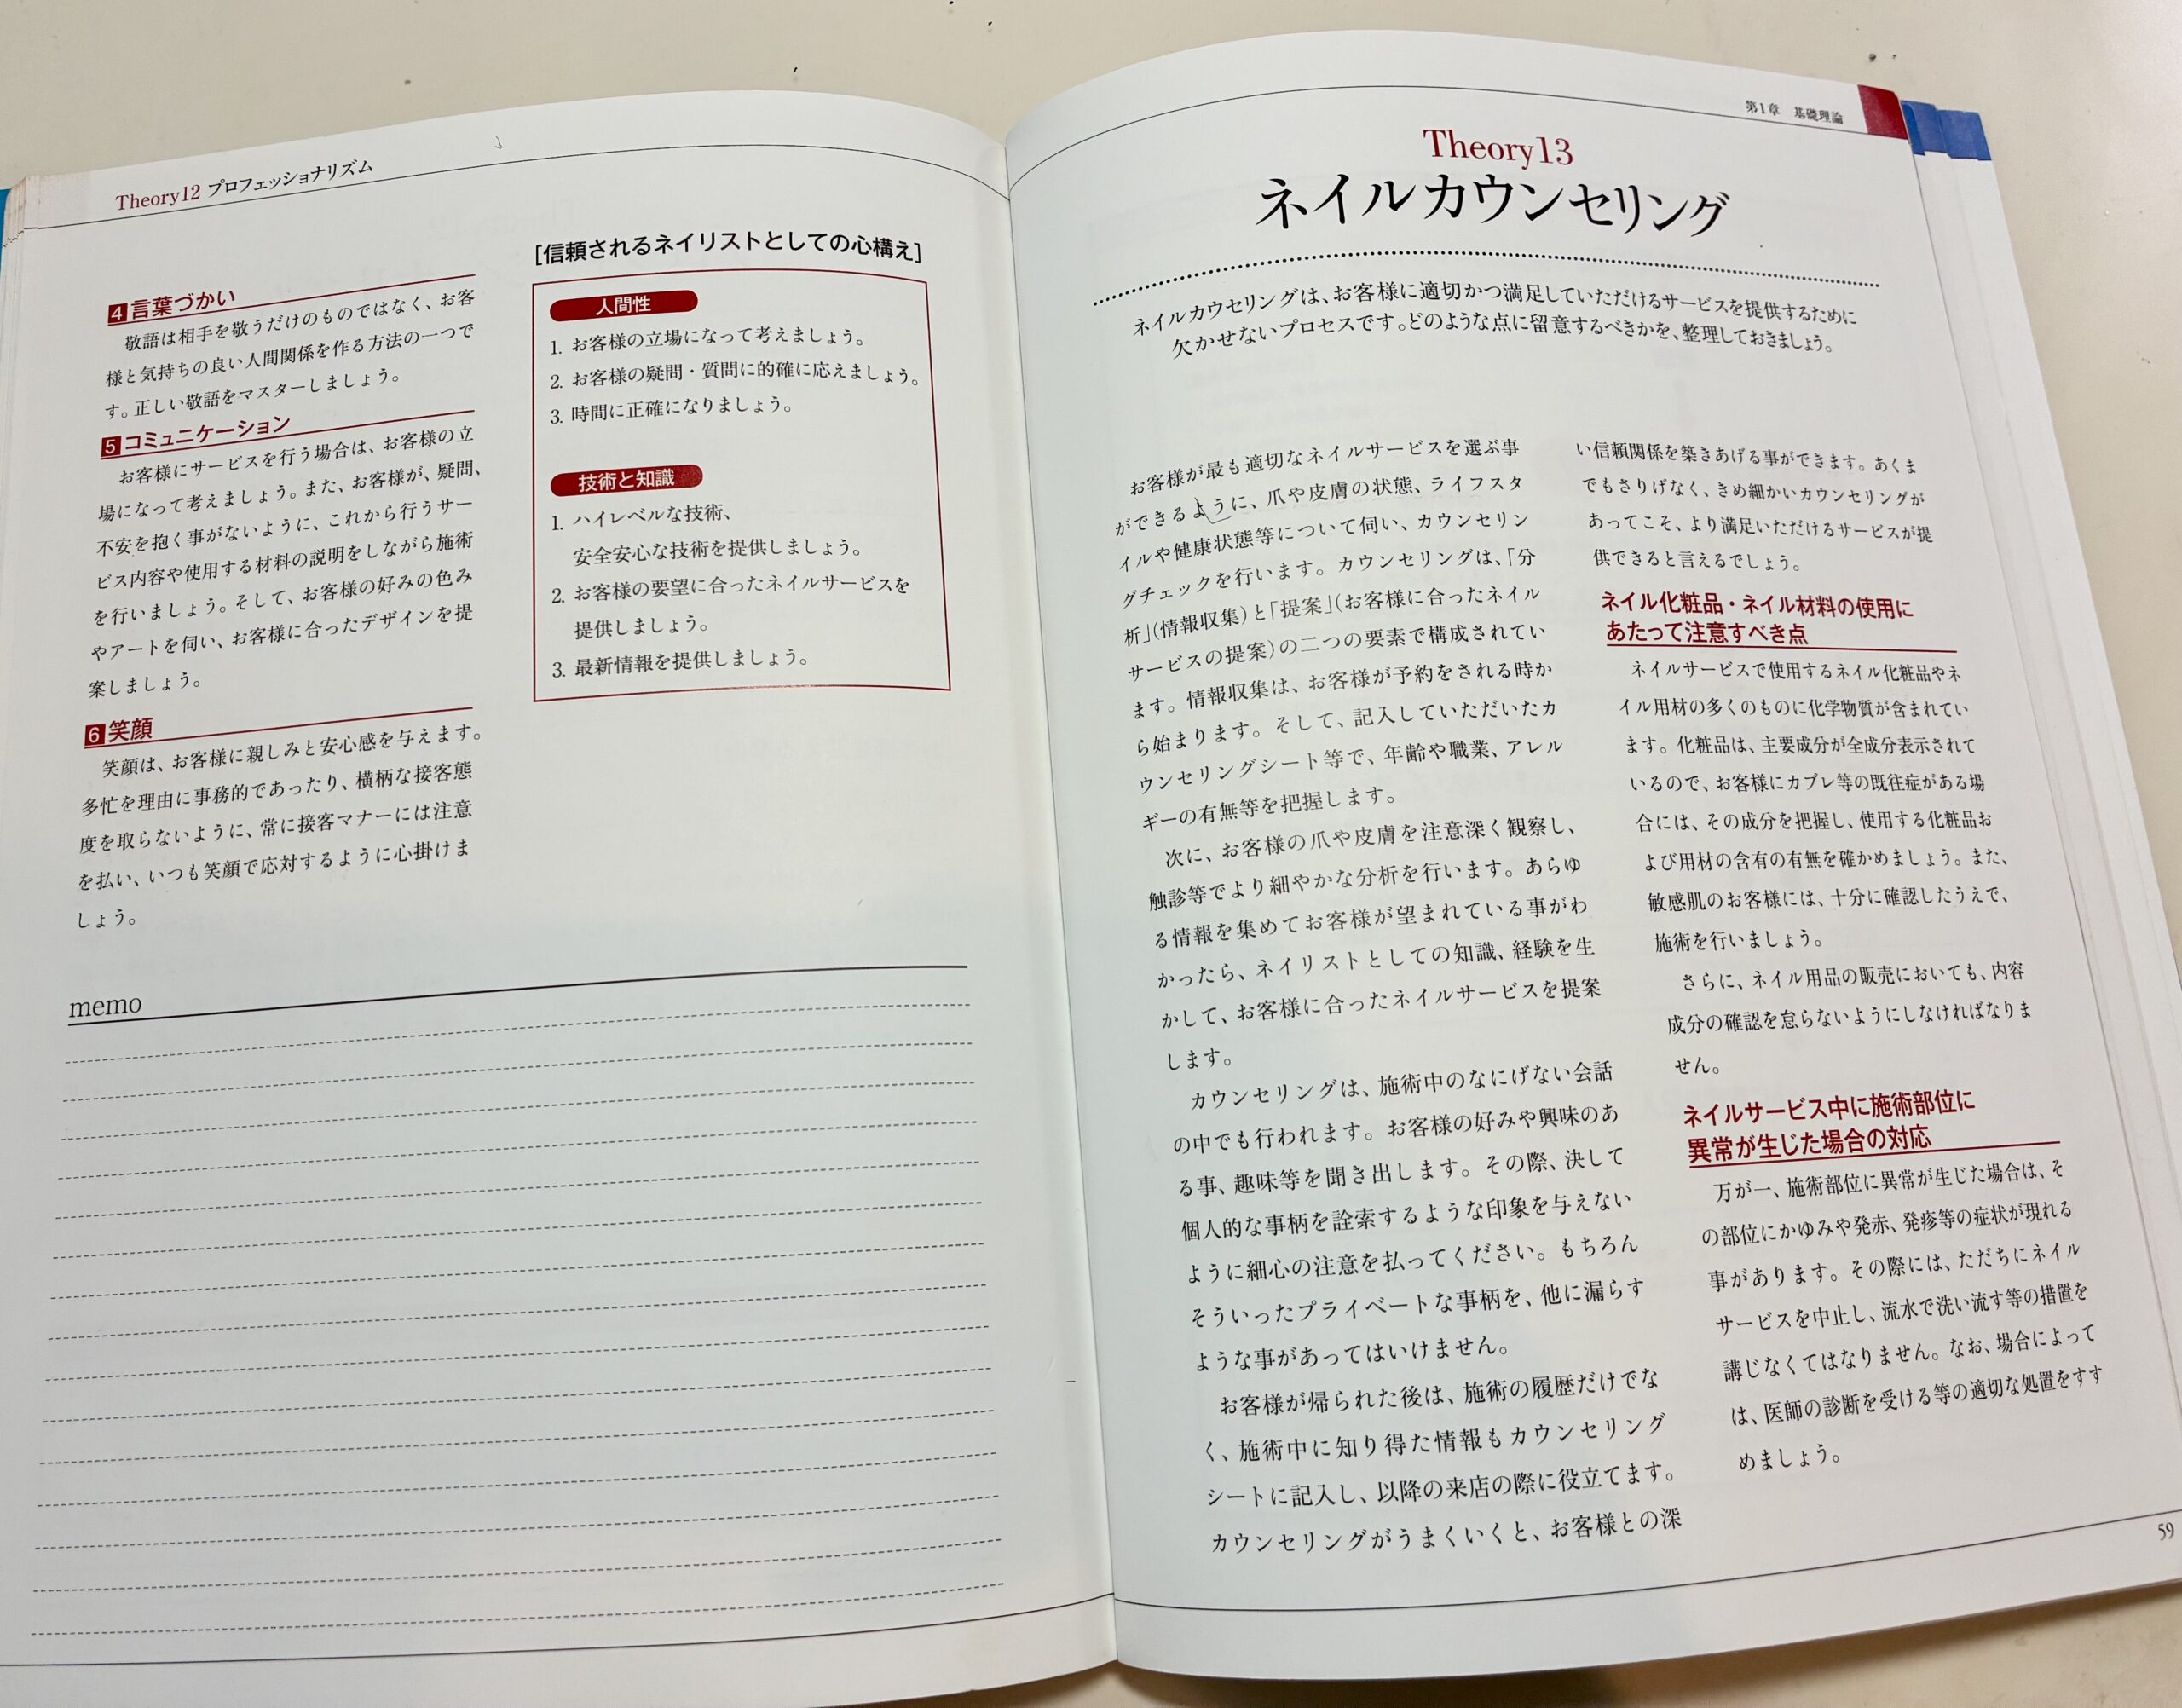 Theory12 プロフェッショナリズム
4 言葉づかい
敬語は相手を敬うだけのものではなく、お客
様と気持ちの良い人間関係を作る方法の一つで
す。正しい敬語をマスターしましょう。
5 コミュニケーション
お客様にサービスを行う場合は、お客様の立
場になって考えましょう。また、お客様が、疑問、
不安を抱く事がないように、これから行うサー
ビス内容や使用する材料の説明をしながら施術
を行いましょう。そして、お客様の好みの色み
やアートを伺い、お客様に合ったデザインを提
案しましょう。
6 笑顔
笑顔は、お客様に親しみと安心感を与えます。
多忙を理由に事務的であったり、横柄な接客態
度を取らないように、常に接客マナーには注意
を払い、いつも笑顔で応対するように心掛けま
しょう。
[信頼されるネイリストとしての心構え]
人間性
1. お客様の立場になって考えましょう。
2. お客様の疑問・質問に的確に応えましょう。
3. 時間に正確になりましょう。
技術と知識
1. ハイレベルな技術、
安全安心な技術を提供しましょう。
2. お客様の要望に合ったネイルサービスを
提供しましょう。
3. 最新情報を提供しましょう。
memo
第1章 基礎理論
Theory13
ネイルカウンセリング
ネイルカウセリングは、お客様に適切かつ満足していただけるサービスを提供するために
欠かせないプロセスです。どのような点に留意するべきかを、整理しておきましょう。
お客様が最も適切なネイルサービスを選ぶ事
ができるように、爪や皮膚の状態、ライフスタ
イルや健康状態等について伺い、カウンセリン
グチェックを行います。カウンセリングは、「分
析」(情報収集)と「提案」(お客様に合ったネイル
サービスの提案)の二つの要素で構成されてい
ます。情報収集は、お客様が予約をされる時か
ら始まります。そして、記入していただいたカ
ウンセリングシート等で、年齢や職業、アレル
ギーの有無等を把握します。
次に、お客様の爪や皮膚を注意深く観察し、
触診等でより細やかな分析を行います。あらゆ
る情報を集めてお客様が望まれている事がわ
かったら、ネイリストとしての知識、経験を生
かして、お客様に合ったネイルサービスを提案
します。
カウンセリングは、施術中のなにげない会話
の中でも行われます。お客様の好みや興味のあ
る事、趣味等を聞き出します。その際、決して
個人的な事柄を詮索するような印象を与えない
ように細心の注意を払ってください。もちろん
そういったプライベートな事柄を、他に漏らす
ような事があってはいけません。
お客様が帰られた後は、施術の履歴だけでな
く、施術中に知り得た情報もカウンセリング
シートに記入し、以降の来店の際に役立てます。
カウンセリングがうまくいくと、お客様との深
い信頼関係を築きあげる事ができます。あくま
でもさりげなく、きめ細かいカウンセリングが
あってこそ、より満足いただけるサービスが提
供できると言えるでしょう。
ネイル化粧品・ネイル材料の使用に
あたって注意すべき点
ネイルサービスで使用するネイル化粧品やネ
イル用材の多くのものに化学物質が含まれてい
ます。化粧品は、主要成分が全成分表示されて
いるので、お客様にカブレ等の既往症がある場
合には、その成分を把握し、使用する化粧品お
よび用材の含有の有無を確かめましょう。また、
敏感肌のお客様には、十分に確認したうえで、
施術を行いましょう。
さらに、ネイル用品の販売においても、内容
成分の確認を怠らないようにしなければなりま
せん。
ネイルサービス中に施術部位に
異常が生じた場合の対応
万が一、施術部位に異常が生じた場合は、そ
の部位にかゆみや発赤、発疹等の症状が現れる
事があります。その際には、ただちにネイル
サービスを中止し、流水で洗い流す等の措置を
講じなくてはなりません。なお、場合によって
は、医師の診断を受ける等の適切な処置をすす
めましょう。
59